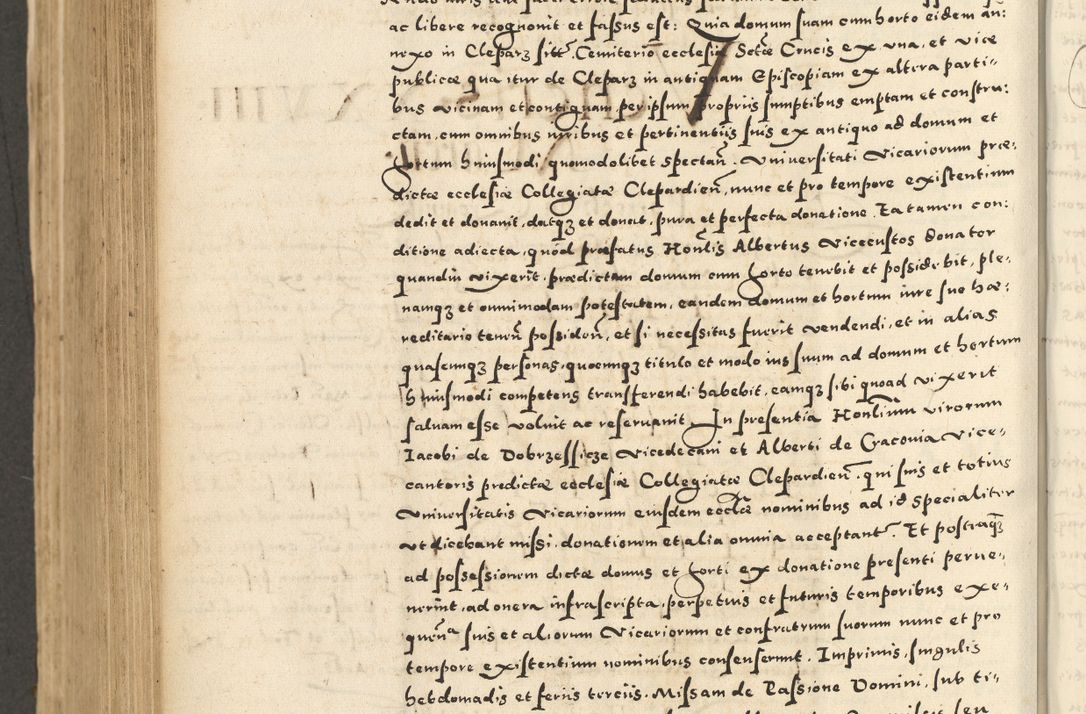 ac libere recognouit et fassus est: Quia domum suam cum horto eidem an:
nexo in Cleparz sitt. Cemiterio ecclesiæ Sctæ Crucis ex vna, et vice
publicæ qua itur de Cleparz in antiquam Episcopiam ex altera parti-
bus vicinam et contiguam, per ipsum propriis sumptibus emptam et constru:
ctam, cum omnibus iuribus et pertinentiis suis ex antiquo ad domum et
hortum huiusmodi quomodolibet spectan̄. Vniuersitati Vicariorum præ:
dictæ ecclesiæ Collegiatæ Clepardien̄, nunc et pro tempore existentium
dedit et donauit, datqȝ et donat, pura et perfecta donatione. Ea tamen con:
ditione adiecta, quod præfatus Honlis Albertus Vicecustos donator
quandiu vixerit, prædictam domum cum horto tenebit et possidebit, ple-
namqȝ et omnimodam potestatem, eandem domum et hortum iure suo hæ-
reditario tenen̄ possiden̄, et si necessitas fuerit vendendi, et in alias
quascunqȝ personas, quocunqȝ titulo et modo ius suum ad domum et hortum
huiusmodi competens transferendi habebit, eamqȝ sibi quoad vixerit
saluam esse voluit ac reseruauit. In presentia Honlium virorum
Iacobi de Dobrzessicze Vicedecani et Alberti de Cracouia Vice-
cantoris predictæ ecclesiæ Collegiatæ Clepardien̄, qui suis et totius
Vniuersitatis Vicariorum eiusdem eccliæ nominibus ad id specialiter
vt dicebant missi, donationem et alia omnia acceptant. Et postaqȝ
ad possessionem dictæ domus et horti ex donatione presenti perue-
nerint, ad onera infrascripta, perpetuis et futuris temporibus exe-
quen̄a suis et aliorum Vicariorum et confratrum suorum nunc et pro
tempore existentium nominibus consenserunt. Imprimis, singulis
hebdomadis et feriis terciis, Missam de Passione Domini, sub ti-